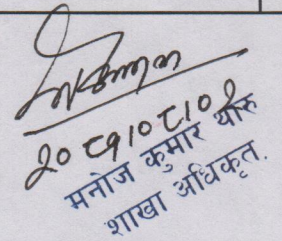 २०८१०८१०२
मनोज कुमार थारु
शाखा अधिकृत.